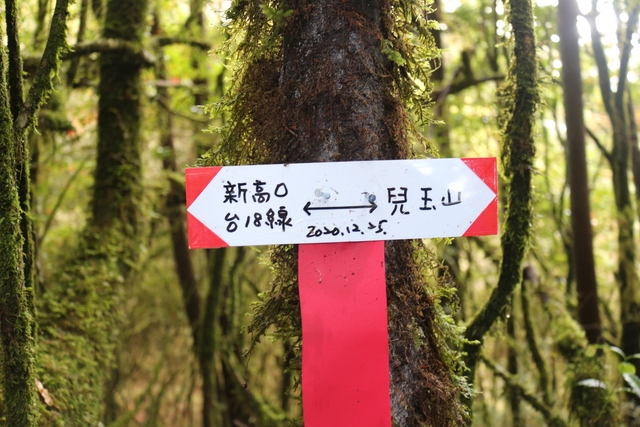 新高口
台18線 ⟷ 兒玉山
2020.12.25.